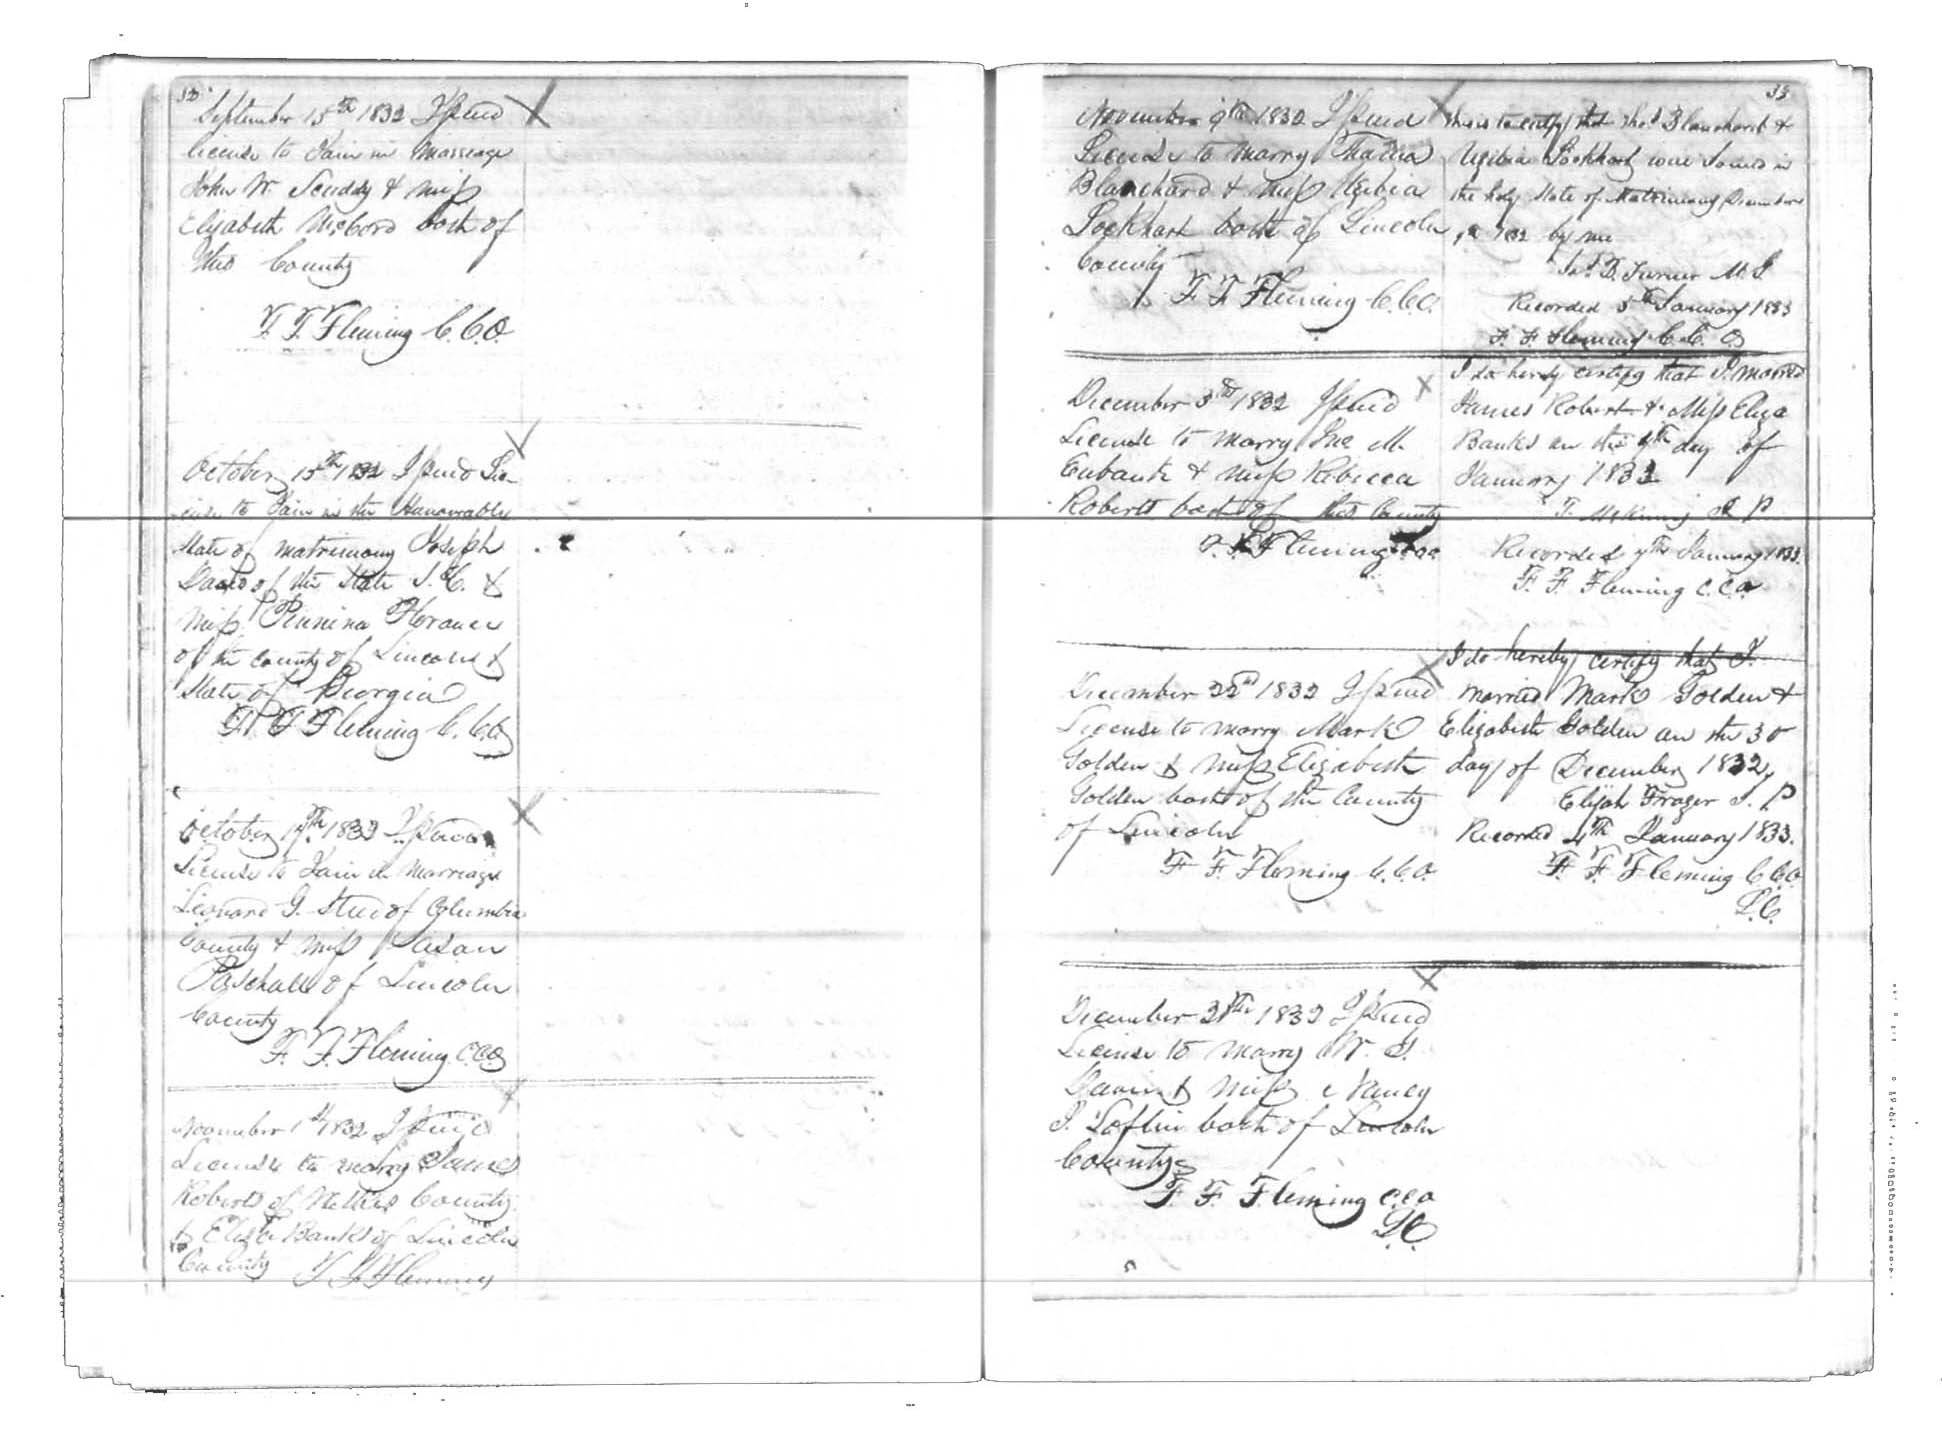 32
September 15th 1832 Issued
license to Join in marriage
John W. Scuddy & miss
Elizabeth McCord both of
this County
F. F. Fleming C.C.O.
October 15th 1832 Issued Lic-
ense to Join in the Honourable
State of matrimony Joseph
David of the State S. C. &
miss Pennina Florance
of the County of Lincoln &
State of Georgia
F. F. Fleming C.C.O
October 17th 1832 Issued
License to Join in marriage
Leonard G. Steed of Columbia
County & miss
Paschall of Lincoln
County
F. F. Fleming C.C.O
November 1st 1832 Issued
License to marry James
Roberts of County
& Eliza Banks of Lincoln
County F F Fleming
33
November 9th 1832 Issued
License to marry Thomas
Blanchard & miss
Lockhart both of Lincoln
County
F. F. Fleming C.C.O.
this is to certify that Thos Blanchard &
Lockhart were Joined in
the holy State of Matrimony December
1832 by me
B. Turner M. G.
Recorded 5th January 1833
F. F. Fleming C. C. O
December 3rd 1832 Issued
License to marry Jno M.
Eubank & miss Rebecca
Roberts both of this County
F. F. Fleming C.C.O.
I do hereby certify that I married
James Robert & Miss Eliza
Banks on the day of
January 1832
J. P
Recorded 7th January 1833.
F. F. Fleming C.C.O
December 22nd 1832 Issued
License to marry Mark
Golden & miss Elizabeth
Golden both of the County
of Lincoln
F. F. Fleming C.C.O.
I do hereby certify that I
married Mark Golden &
Elizabeth Golden on the 30
day of December 1832,
Elijah Frazer J. P
Recorded 4th January 1833.
F. F. Fleming C.C.O
L.C.
December 31st 1832 Issued
License to marry W. S.
& miss Nancy
J. Loflin both of Lincoln
County
F. F. Fleming C.C.O
L.C.